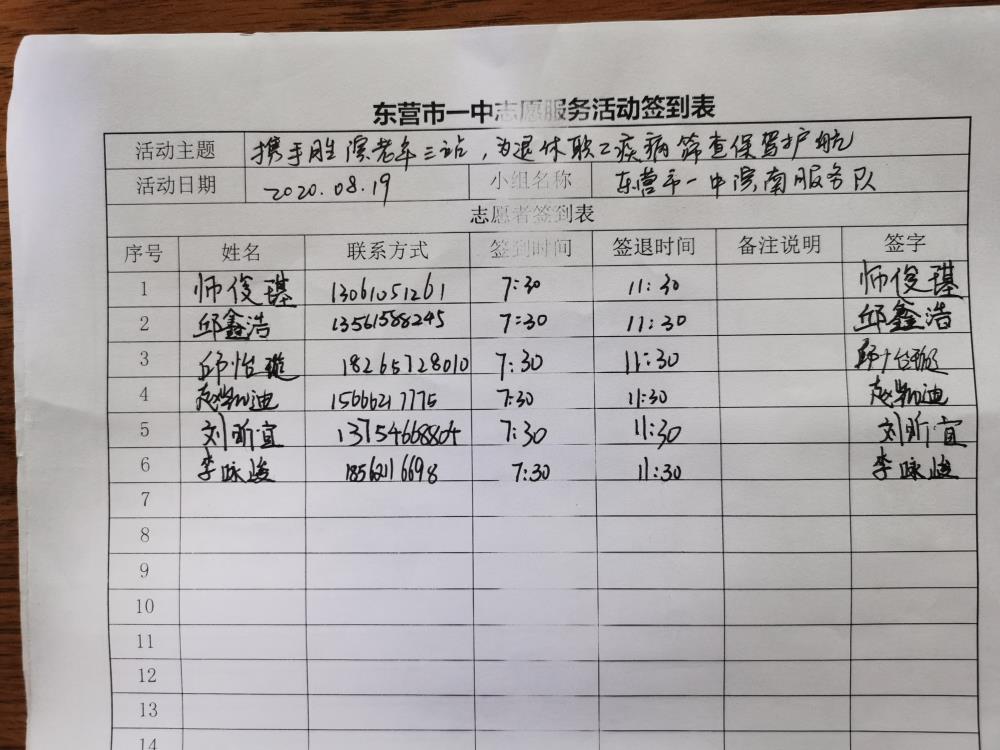 东营市一中志愿服务活动签到表
活动主题 携手胜滨老年三站，为退休职工疾病筛查保驾护航
活动日期 2020.08.19 小组名称 东营市一中滨南服务队
志愿者签到表
序号 姓名 联系方式 签到时间 签退时间 备注说明 签字
1 师俊琪 13061051261 7:30 11:30 师俊琪
2 邱鑫浩 13561588245 7:30 11:30 邱鑫浩
3 邱怡璇 18265728010 7:30 11:30 邱怡璇
4 赵凯迪 15666217775 7:30 11:30 赵凯迪
5 刘昕宜 13754668804 7:30 11:30 刘昕宜
6 李咏峻 7:30 11:30 李咏峻
7
8
9
10
11
12
13
14